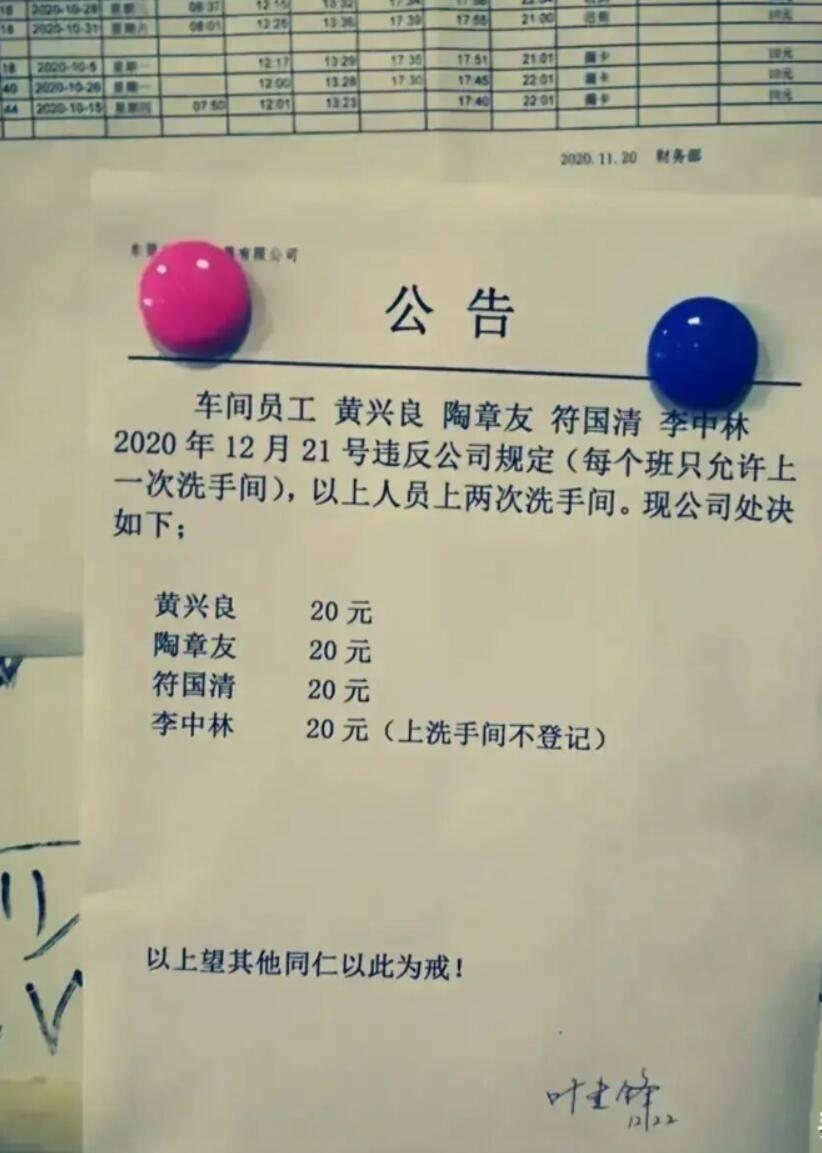 2020-10-28 08:37 12:15 13:32
18 2020-10-31 星期六 08:01 12:26 13:36 17:39 17:55 21:00
18 2020-10-5 星期一 12:17 13:29 17:35 17:51 21:01 漏卡 10元
40 2020-10-26 星期一 12:00 13:28 17:30 17:45 22:01 漏卡 10元
44 2020-10-15 星期四 07:50 12:01 13:23 17:40 22:01 漏卡 10元
2020.11.20 财务部
有限公司
公告
车间员工 黄兴良 陶章友 符国清 李中林
2020 年 12 月 21 号违反公司规定（每个班只允许上
一次洗手间），以上人员上两次洗手间。现公司处决
如下；
黄兴良 20 元
陶章友 20 元
符国清 20 元
李中林 20 元（上洗手间不登记）
以上望其他同仁以此为戒！
12/22